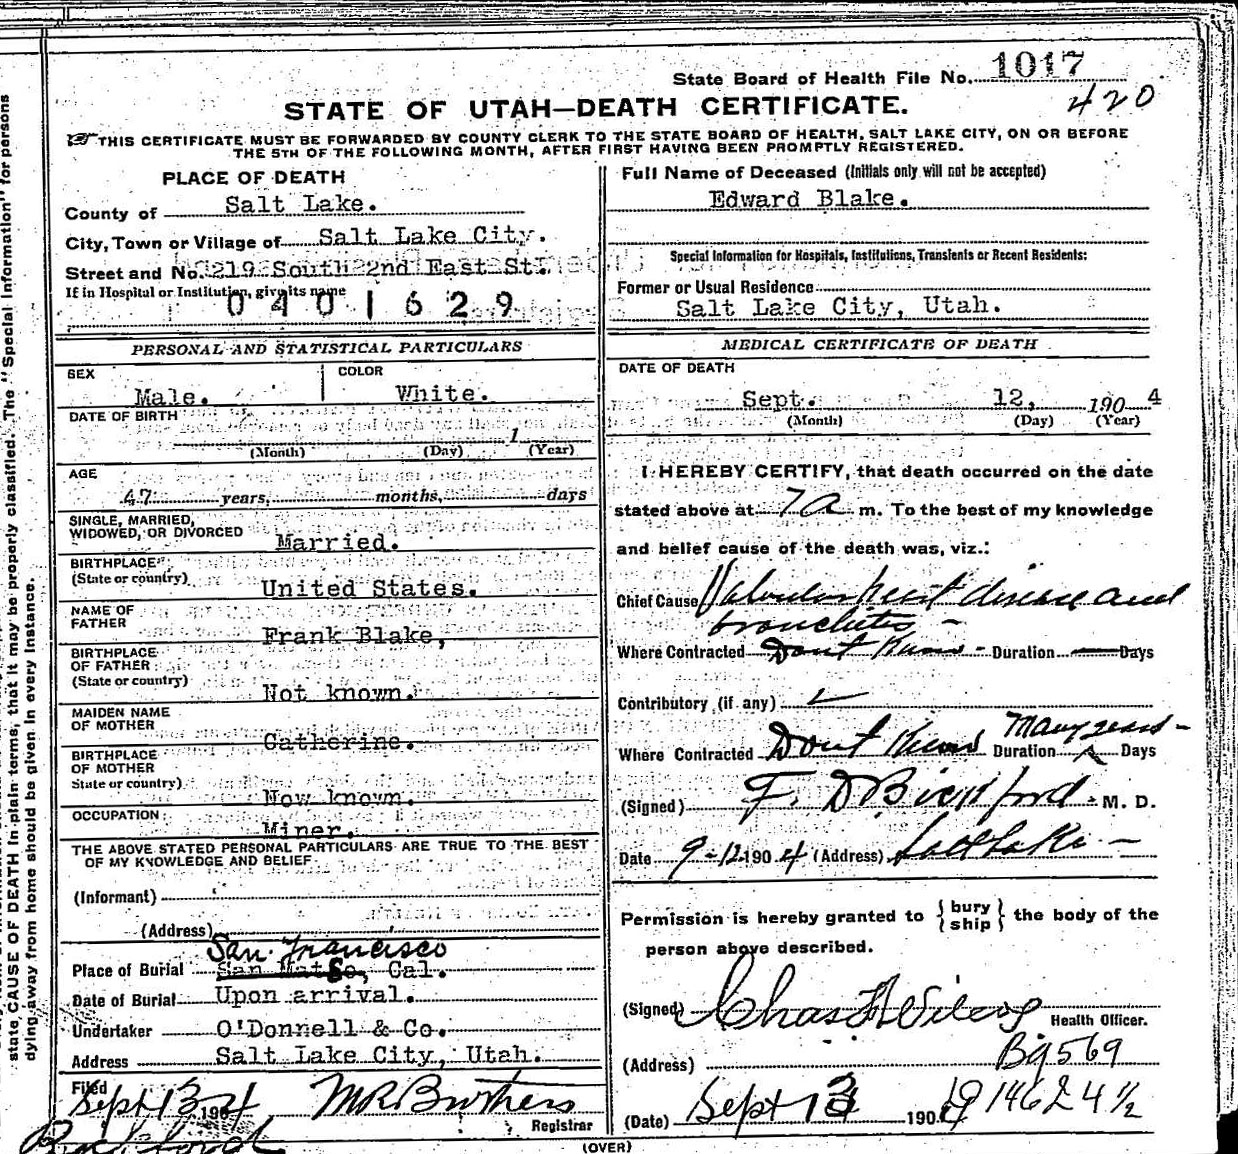 State Board of Health File No. 1017
420
STATE OF UTAH—DEATH CERTIFICATE.
THIS CERTIFICATE MUST BE FORWARDED BY COUNTY CLERK TO THE STATE BOARD OF HEALTH, SALT LAKE CITY, ON OR BEFORE
THE 5TH OF THE FOLLOWING MONTH, AFTER FIRST HAVING BEEN PROMPTLY REGISTERED.
PLACE OF DEATH
County of Salt Lake.
City, Town or Village of Salt Lake City.
Street and No. 219 South 2nd East St.
If in Hospital or Institution, give its name
0401629
Full Name of Deceased (Initials only will not be accepted)
Edward Blake.
Special Information for Hospitals, Institutions, Transients or Recent Residents:
Former or Usual Residence
Salt Lake City, Utah.
PERSONAL AND STATISTICAL PARTICULARS
SEX COLOR
Male. White.
DATE OF BIRTH
1
(Month) (Day) (Year)
AGE
47 years, months, days
SINGLE, MARRIED,
WIDOWED, OR DIVORCED
Married.
BIRTHPLACE
(State or country)
United States.
NAME OF
FATHER
Frank Blake,
BIRTHPLACE
OF FATHER
(State or country)
Not known.
MAIDEN NAME
OF MOTHER
Catherine.
BIRTHPLACE
OF MOTHER
State or country)
Now known.
OCCUPATION
Miner.
THE ABOVE STATED PERSONAL PARTICULARS ARE TRUE TO THE BEST
OF MY KNOWLEDGE AND BELIEF
(Informant)
(Address)
San Francisco
Place of Burial San Mateo, Cal.
Date of Burial Upon arrival.
Undertaker O'Donnell & Co.
Address Salt Lake City, Utah.
Filed
Sept 13 1904
Registrar
MEDICAL CERTIFICATE OF DEATH
DATE OF DEATH
Sept. 12, 190 4
(Month) (Day) (Year)
I HEREBY CERTIFY, that death occurred on the date
stated above at 7 a m. To the best of my knowledge
and belief cause of the death was, viz.:
Chief Cause Valvular heart disease and
bronchitis -
Where Contracted Dont Know - Duration Days
Contributory (if any)
Many years -
Where Contracted Dont Know Duration Days
(Signed) F. D Bickford M. D.
Date 9-12 1904 (Address) Salt Lake -
Permission is hereby granted to {bury
ship} the body of the
person above described.
(Signed) Chas
Health Officer.
(Address) Bg 569
(Date) Sept 13 190 19 14624 1/2
(OVER)
state CAUSE OF DEATH in plain terms, that it may be properly classified. The "Special Information" for persons
dying away from home should be given in every instance.